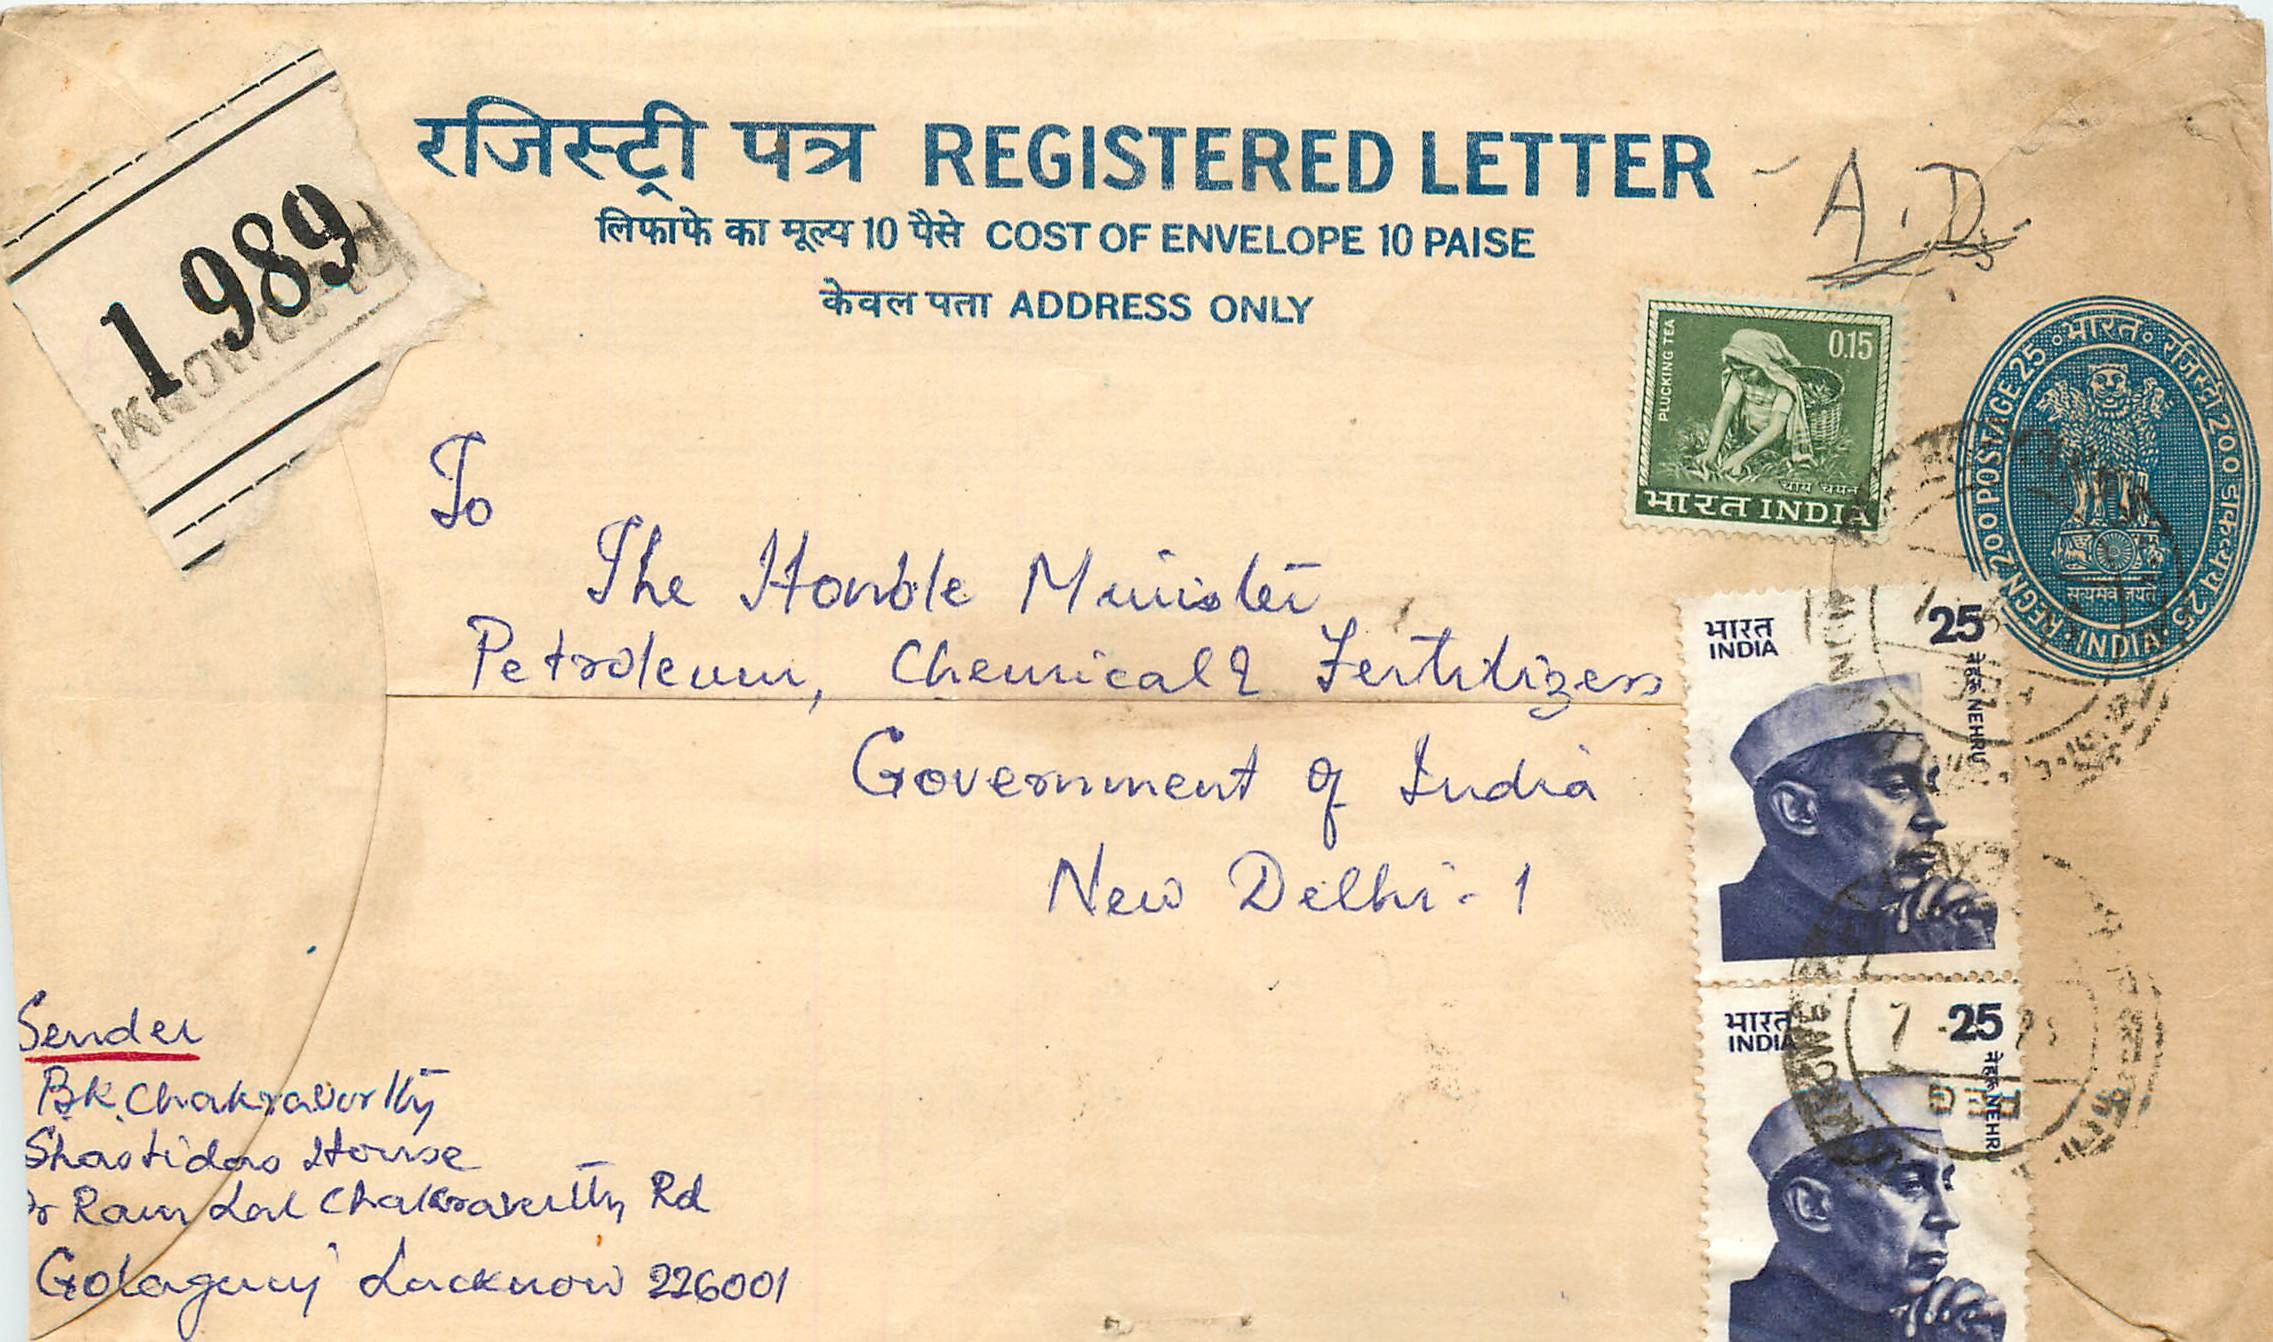 रजिस्ट्री पत्र REGISTERED LETTER
A.D.
लिफाफे का मूल्य 10 पैसे COST OF ENVELOPE 10 PAISE
केवल पता ADDRESS ONLY
1 989
PLUCKING TEA
0.15
चाय चयन
भारत INDIA
भारत रजिस्ट्री 200 डाक व्यय 25
REGN 200 POSTAGE 25
सत्यमेव जयते
INDIA
To
The Honble Minister
Petroleum, Chemical & Fertilizers
Government of India
New Delhi - 1
भारत
INDIA
25
नेहरू NEHRU
भारत
INDIA
25
नेहरू NEHRU
REG
Sender
B.K. Chakravorthy
Shastidas House
Dr Ram Lal Chakravertty Rd
Golaganj Lucknow 226001